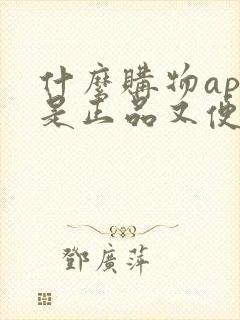 什麼購物ap
是正品又便
鄧廣萍